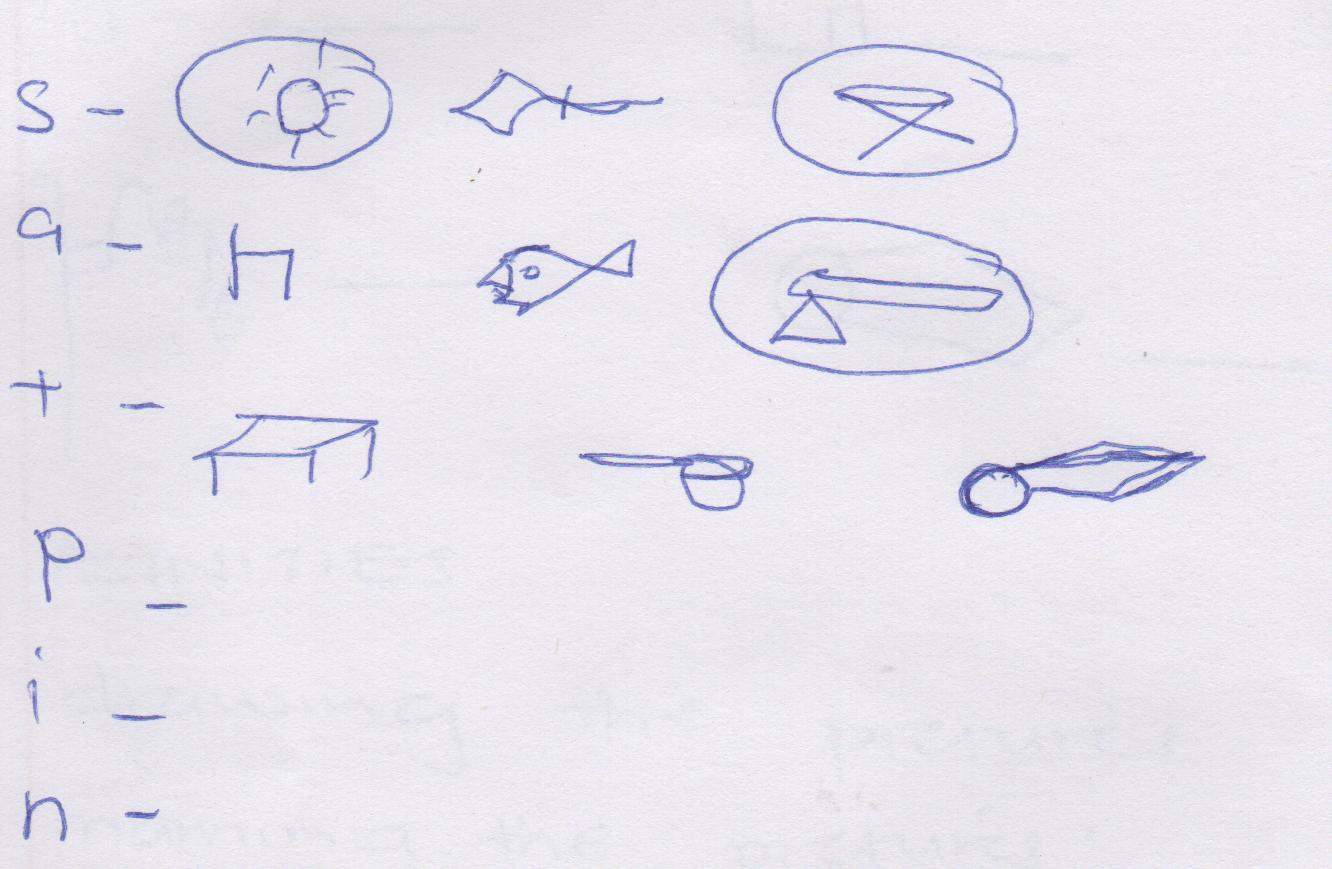 s -
a -
t -
p -
i -
n -